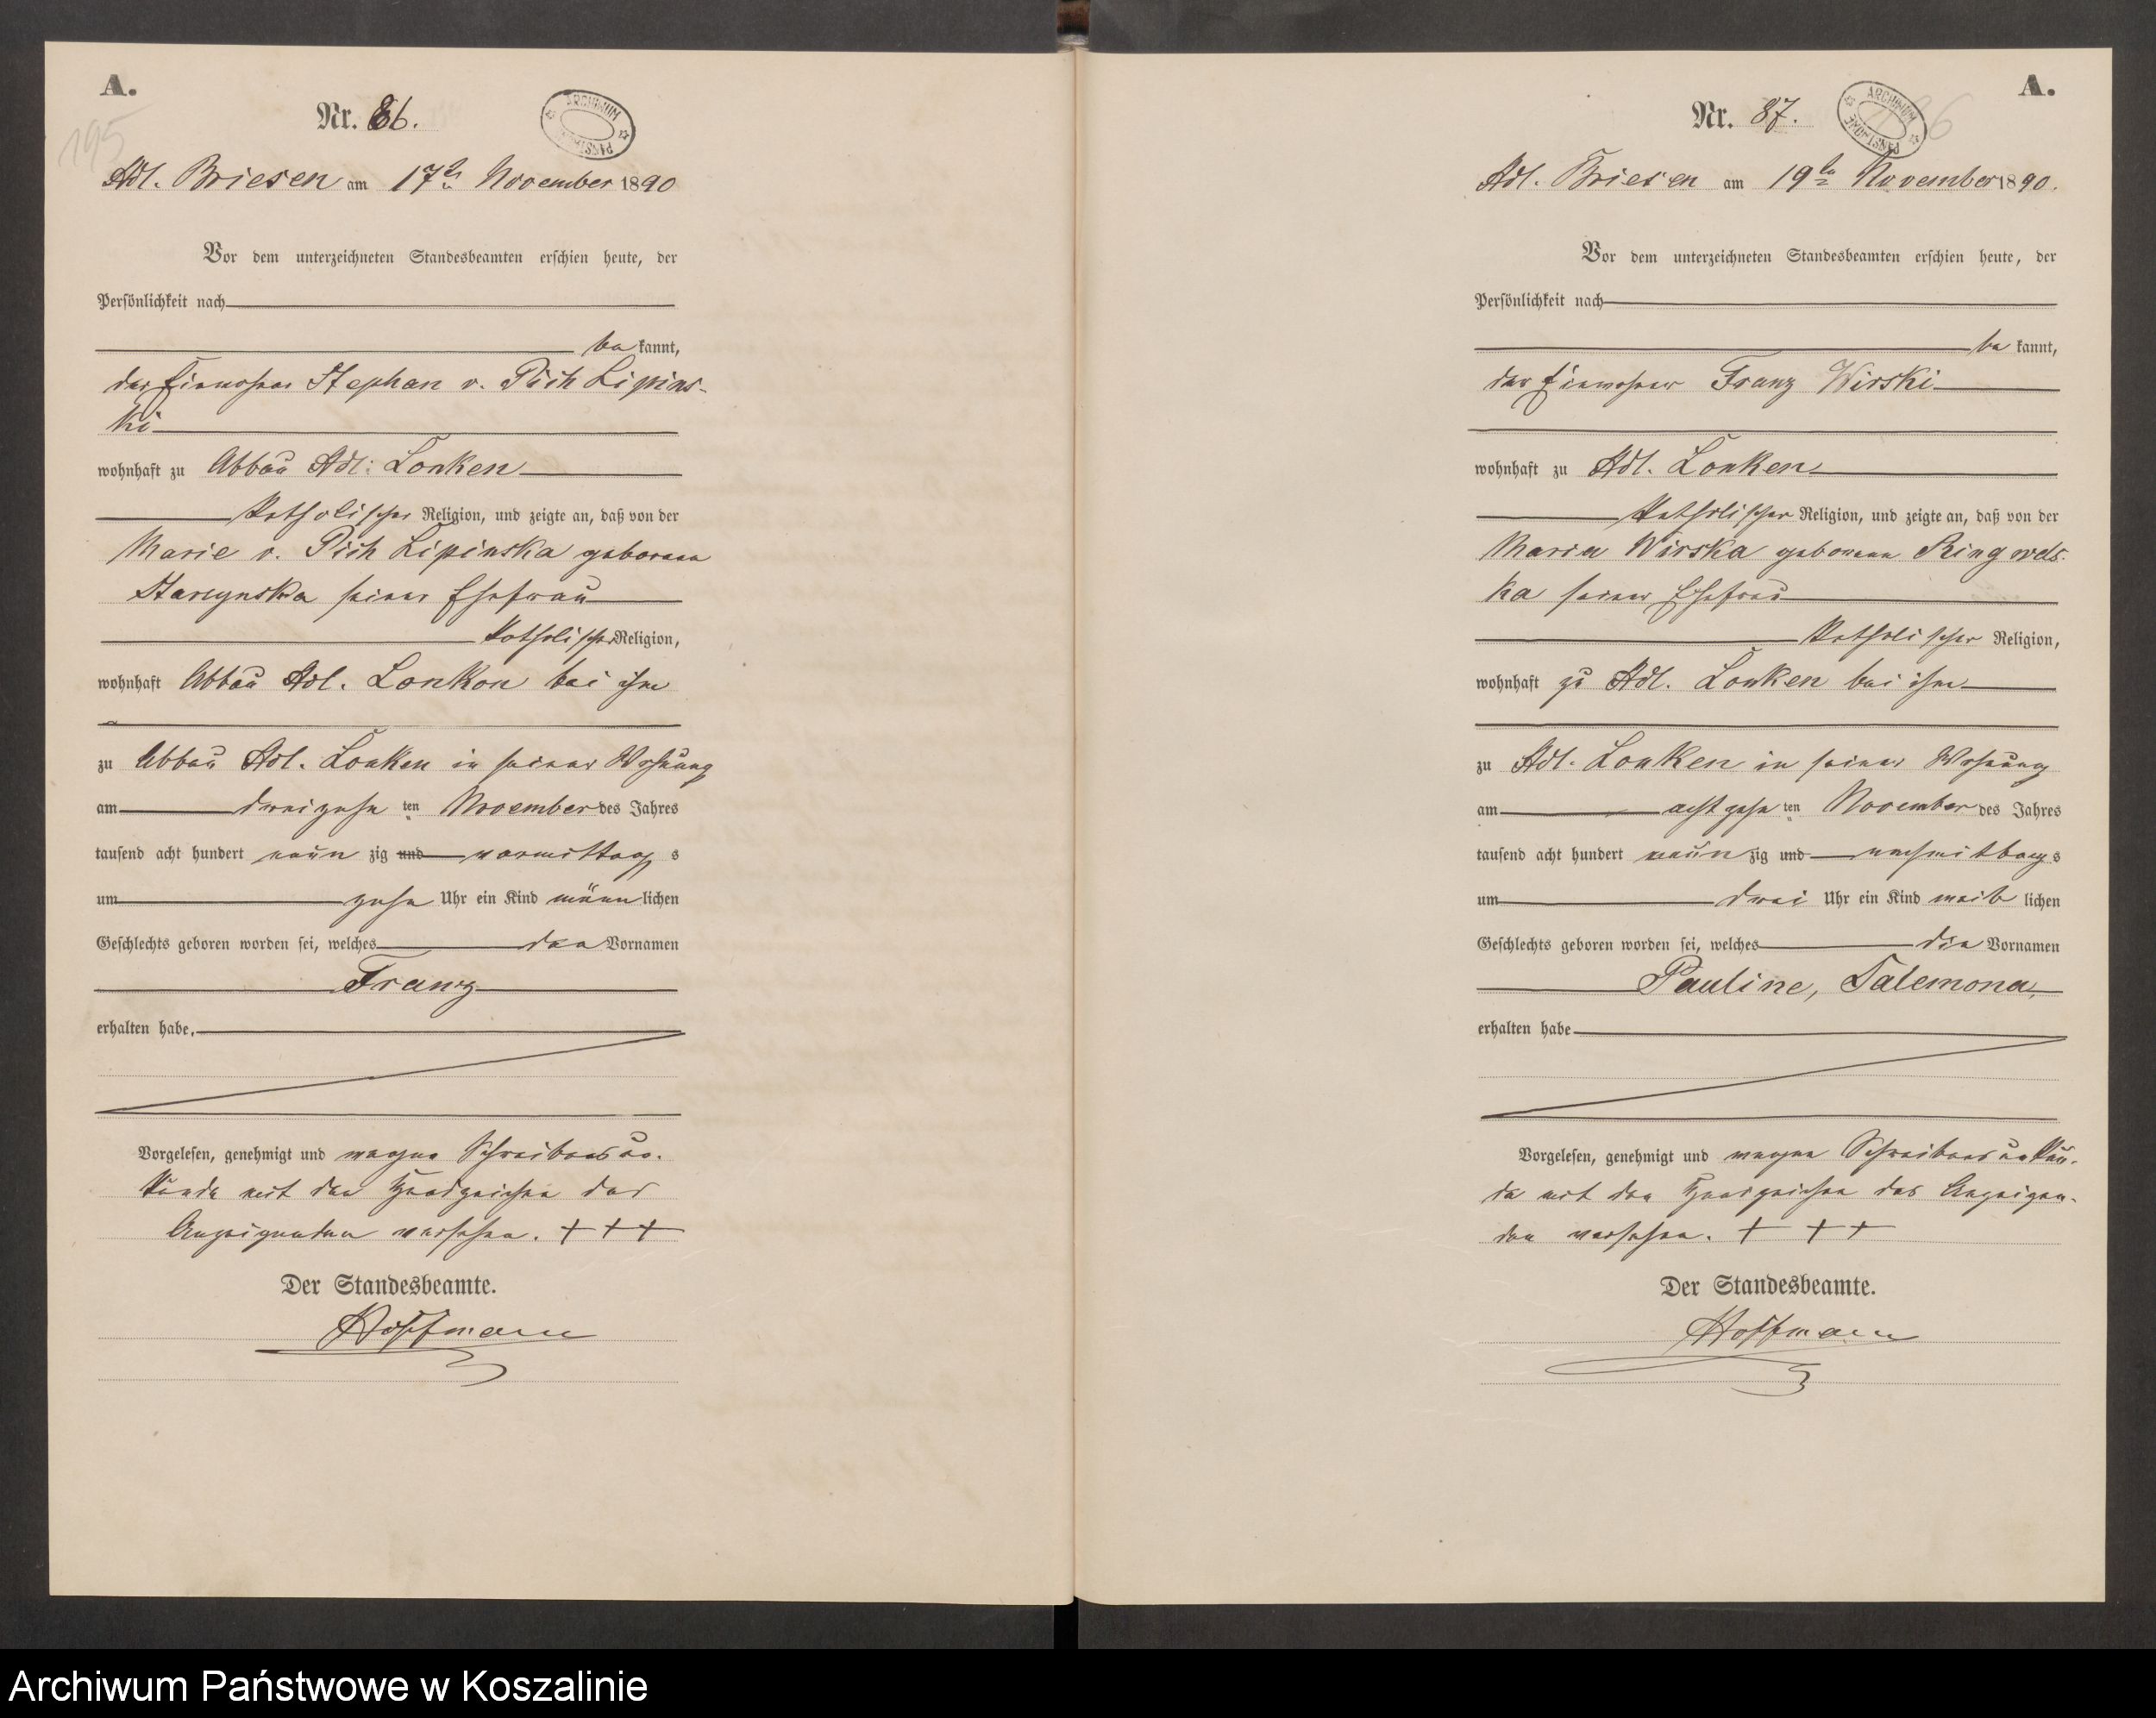 A.
195
Nr. 86.
ARCHIWUM PAŃSTWOWE
Adl. Briesen am 17ten November 1890
Vor dem unterzeichneten Standesbeamten erschien heute, der
Persönlichkeit nach
be kannt,
der Einwohner Stephan v. Pich Lipins-
ki
wohnhaft zu Abbau Adl. Lonken
katholischer Religion, und zeigte an, daß von der
Marie v. Pich Lipinska geborenen
Starcynska seiner Ehefrau
katholischer Religion,
wohnhaft Abbau Adl. Lonken bei ihm
zu Abbau Adl. Lonken in seiner Wohnung
am dreizehn ten November des Jahres
tausend acht hundert neun zig und vormittag s
um zehn Uhr ein Kind männ lichen
Geschlechts geboren worden sei, welches den Vornamen
Franz
erhalten habe.
Vorgelesen, genehmigt und wegen Schreibensun-
kunde mit den Handzeichen des
Anzeigenden versehen. + + +
Der Standesbeamte.
Hoffmann
A.
Nr. 87.
ARCHIWUM PAŃSTWOWE
Adl. Briesen am 19ten November 1890.
Vor dem unterzeichneten Standesbeamten erschien heute, der
Persönlichkeit nach
be kannt,
der Einwohner Franz Wirski
wohnhaft zu Adl. Lonken
katholischer Religion, und zeigte an, daß von der
Maria Wirska geborenen Ringwels-
ka seiner Ehefrau
katholischer Religion,
wohnhaft zu Adl. Lonken bei ihm
zu Adl. Lonken in seiner Wohnung
am achtzehn ten November des Jahres
tausend acht hundert neun zig und nachmittag s
um drei Uhr ein Kind weib lichen
Geschlechts geboren worden sei, welches die Vornamen
Pauline, Salemona,
erhalten habe
Vorgelesen, genehmigt und wegen Schreibensunkun-
de mit den Handzeichen des Anzeigen-
den versehen. + + +
Der Standesbeamte.
Hoffmann
Archiwum Państwowe w Koszalinie